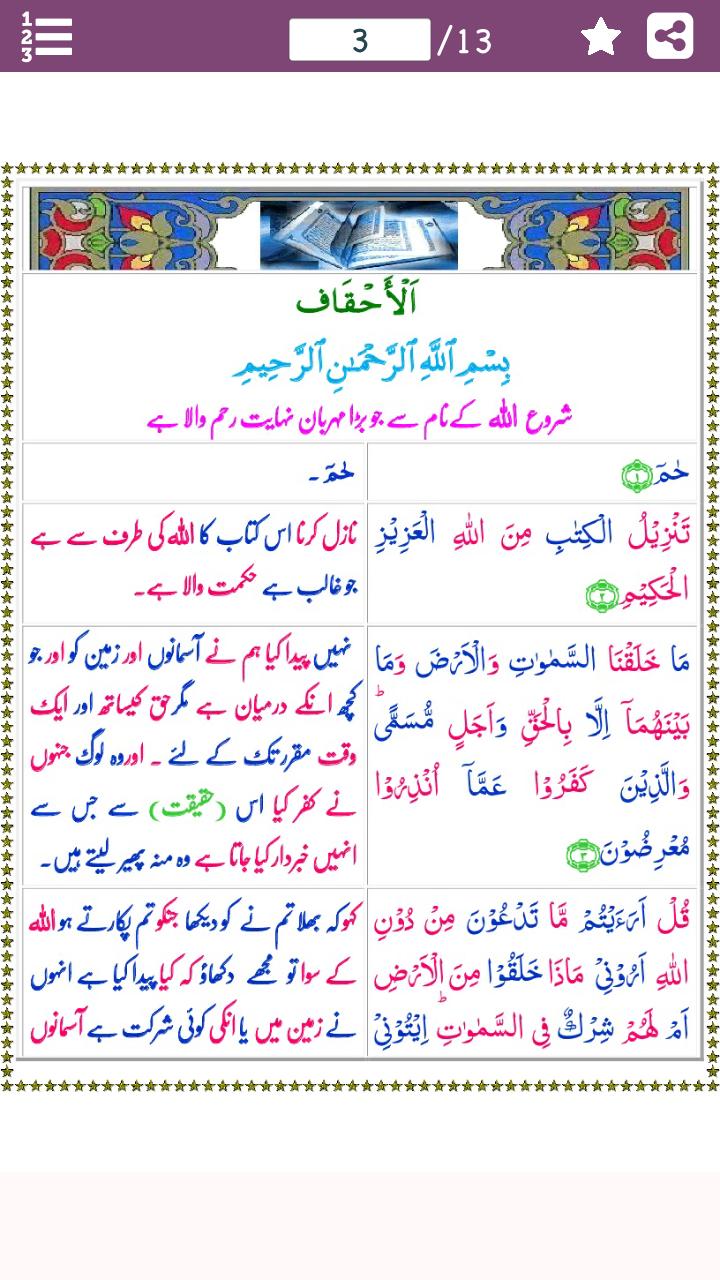 1
2
3
3 /13
اَلْأَحْقَاف
بِسْمِ ٱللَّهِ ٱلرَّحْمَـٰنِ ٱلرَّحِيمِ
شروع اللہ کے نام سے جو بڑا مہربان نہایت رحم والا ہے
حٰمٓ ۱
حٰمٓ ۔
تَنْزِیْلُ الْكِتٰبِ مِنَ اللّٰهِ الْعَزِیْزِ
الْحَكِیْمِ ۲
نازل کرنا اس کتاب کا اللہ کی طرف سے ہے
جو غالب ہے حکمت والا ہے۔
مَا خَلَقْنَا السَّمٰوٰتِ وَالْاَرْضَ وَمَا
بَیْنَهُمَاۤ اِلَّا بِالْحَقِّ وَاَجَلٍ مُّسَمًّیؕ
وَالَّذِیْنَ كَفَرُوْا عَمَّاۤ اُنْذِرُوْا
مُعْرِضُوْنَ ۳
نہیں پیدا کیا ہم نے آسمانوں اور زمین کو اور جو
کچھ انکے درمیان ہے مگر حق کیساتھ اور ایک
وقت مقرر تک کے لئے ۔ اور وہ لوگ جنہوں
نے کفر کیا اس (حقیقت) سے جس سے
انہیں خبردار کیا جاتا ہے وہ منہ پھیر لیتے ہیں۔
قُلْ اَرَءَیْتُمْ مَّا تَدْعُوْنَ مِنْ دُوْنِ
اللّٰهِ اَرُوْنِیْ مَاذَا خَلَقُوْا مِنَ الْاَرْضِ
اَمْ لَهُمْ شِرْكٌ فِی السَّمٰوٰتِؕ اِیْتُوْنِیْ
کہو کہ بھلا تم نے کو دیکھا جنکو تم پکارتے ہو اللہ
کے سوا تو مجھے دکھاؤ کہ کیا پیدا کیا ہے انہوں
نے زمین میں یا انکی کوئی شرکت ہے آسمانوں